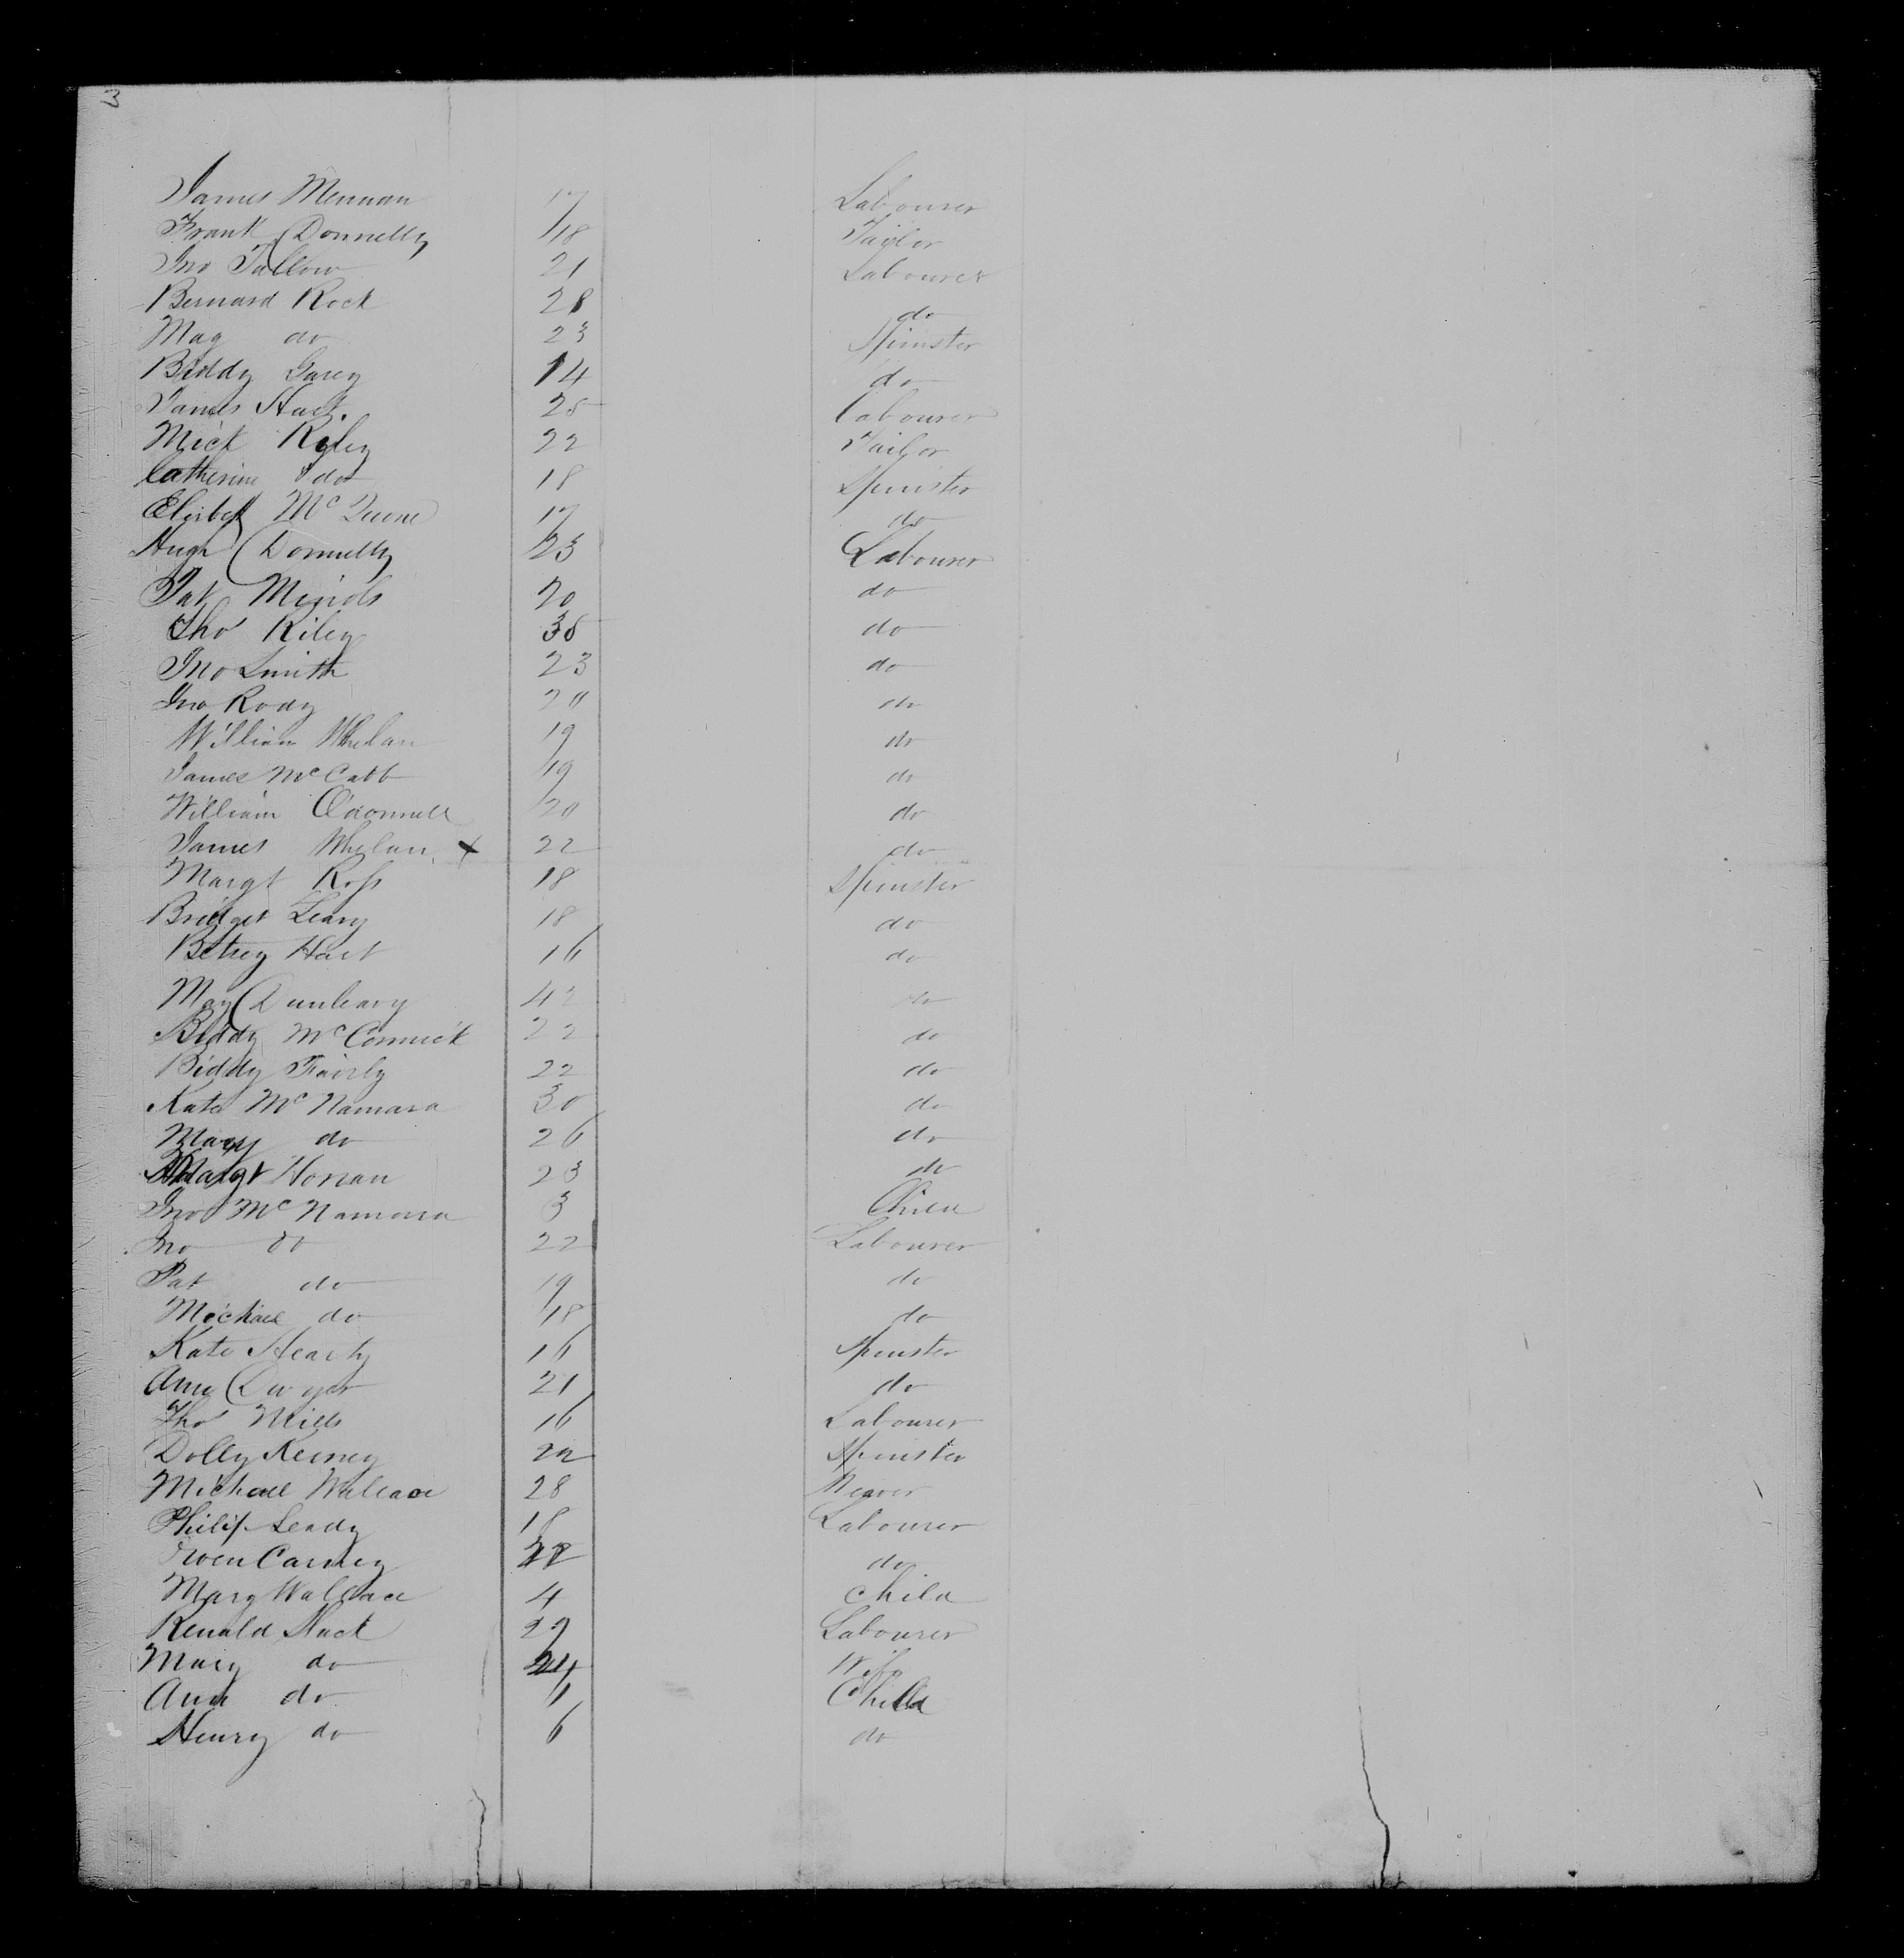 3
James Mennan 17 Labourer
Frank Donnelly 18 Taylor
Jno Tallow 21 Labourer
Bernard Rock 28 do
Mag do 23 Spinster
Biddy Garey 14 do
James Hart. 25 Labourer
Mick Riley 22 Tailor
Catherine do 18 Spinster
Elisbet Mc 17 do
Hugh Donnelly 23 Labourer
Pat 20 do
Tho Riley 35 do
Jno Smith 23 do
Jno Rody 20 do
William Whelan 19 do
James McCabb 19 do
William O'donnell 20 do
James Whelan x 22 do
Margt Ross 18 Spinster
Bridget Leary 18 do
Betsey Hart 16 do
May Dunleavy 42 do
Biddy McCormick 22 do
Biddy Fairly 22 do
Kate McNamara 30 do
Mary do 26 do
Margt Honan 23 do
Jno McNamara 3 Child
Jno do 22 Labourer
Pat do 19 do
Michael do 18 do
Kate Hearty 16 Spinster
Ann Dwyer 21 do
Tho Mills 16 Labourer
Dolly Keiney 22 Spinster
Michael Wallace 28 Weaver
Philip Leady 18 Labourer
Owen Carney 22 do
Mary Wallace 4 Child
Renald Nack 29 Labourer
Mary do 24 Wife
Ann do 11 Child
Henry do 6 do